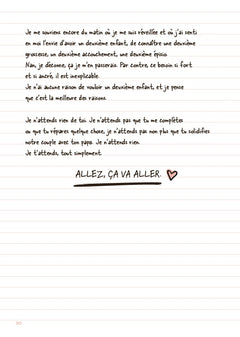 Je me souviens encore du matin où je me suis réveillée et où j'ai senti
en moi l'envie d'avoir un deuxième enfant, de connaître une deuxième
grossesse, un deuxième accouchement, une deuxième épisio.
Nan, je déconne, ça je m'en passerais. Par contre, ce besoin si fort
et si ancré, il est inexplicable.
Je n'ai aucune raison de vouloir un deuxième enfant, et je pense
que c'est la meilleure des raisons.
Je n'attends rien de toi. Je n'attends pas que tu me complètes
ou que tu répares quelque chose, je n'attends pas non plus que tu solidifies
notre couple avec ton papa. Je n'attends rien.
Je t'attends, tout simplement.
ALLEZ, ÇA VA ALLER.